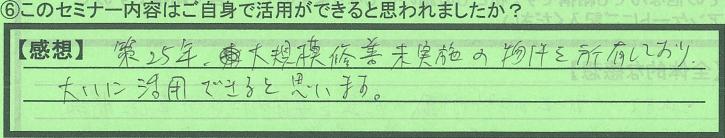 ⑥このセミナー内容はご自身で活用ができると思われましたか？
【感想】 築25年、大規模修善未実施の物件を所有しており、
大いに活用できると思います。